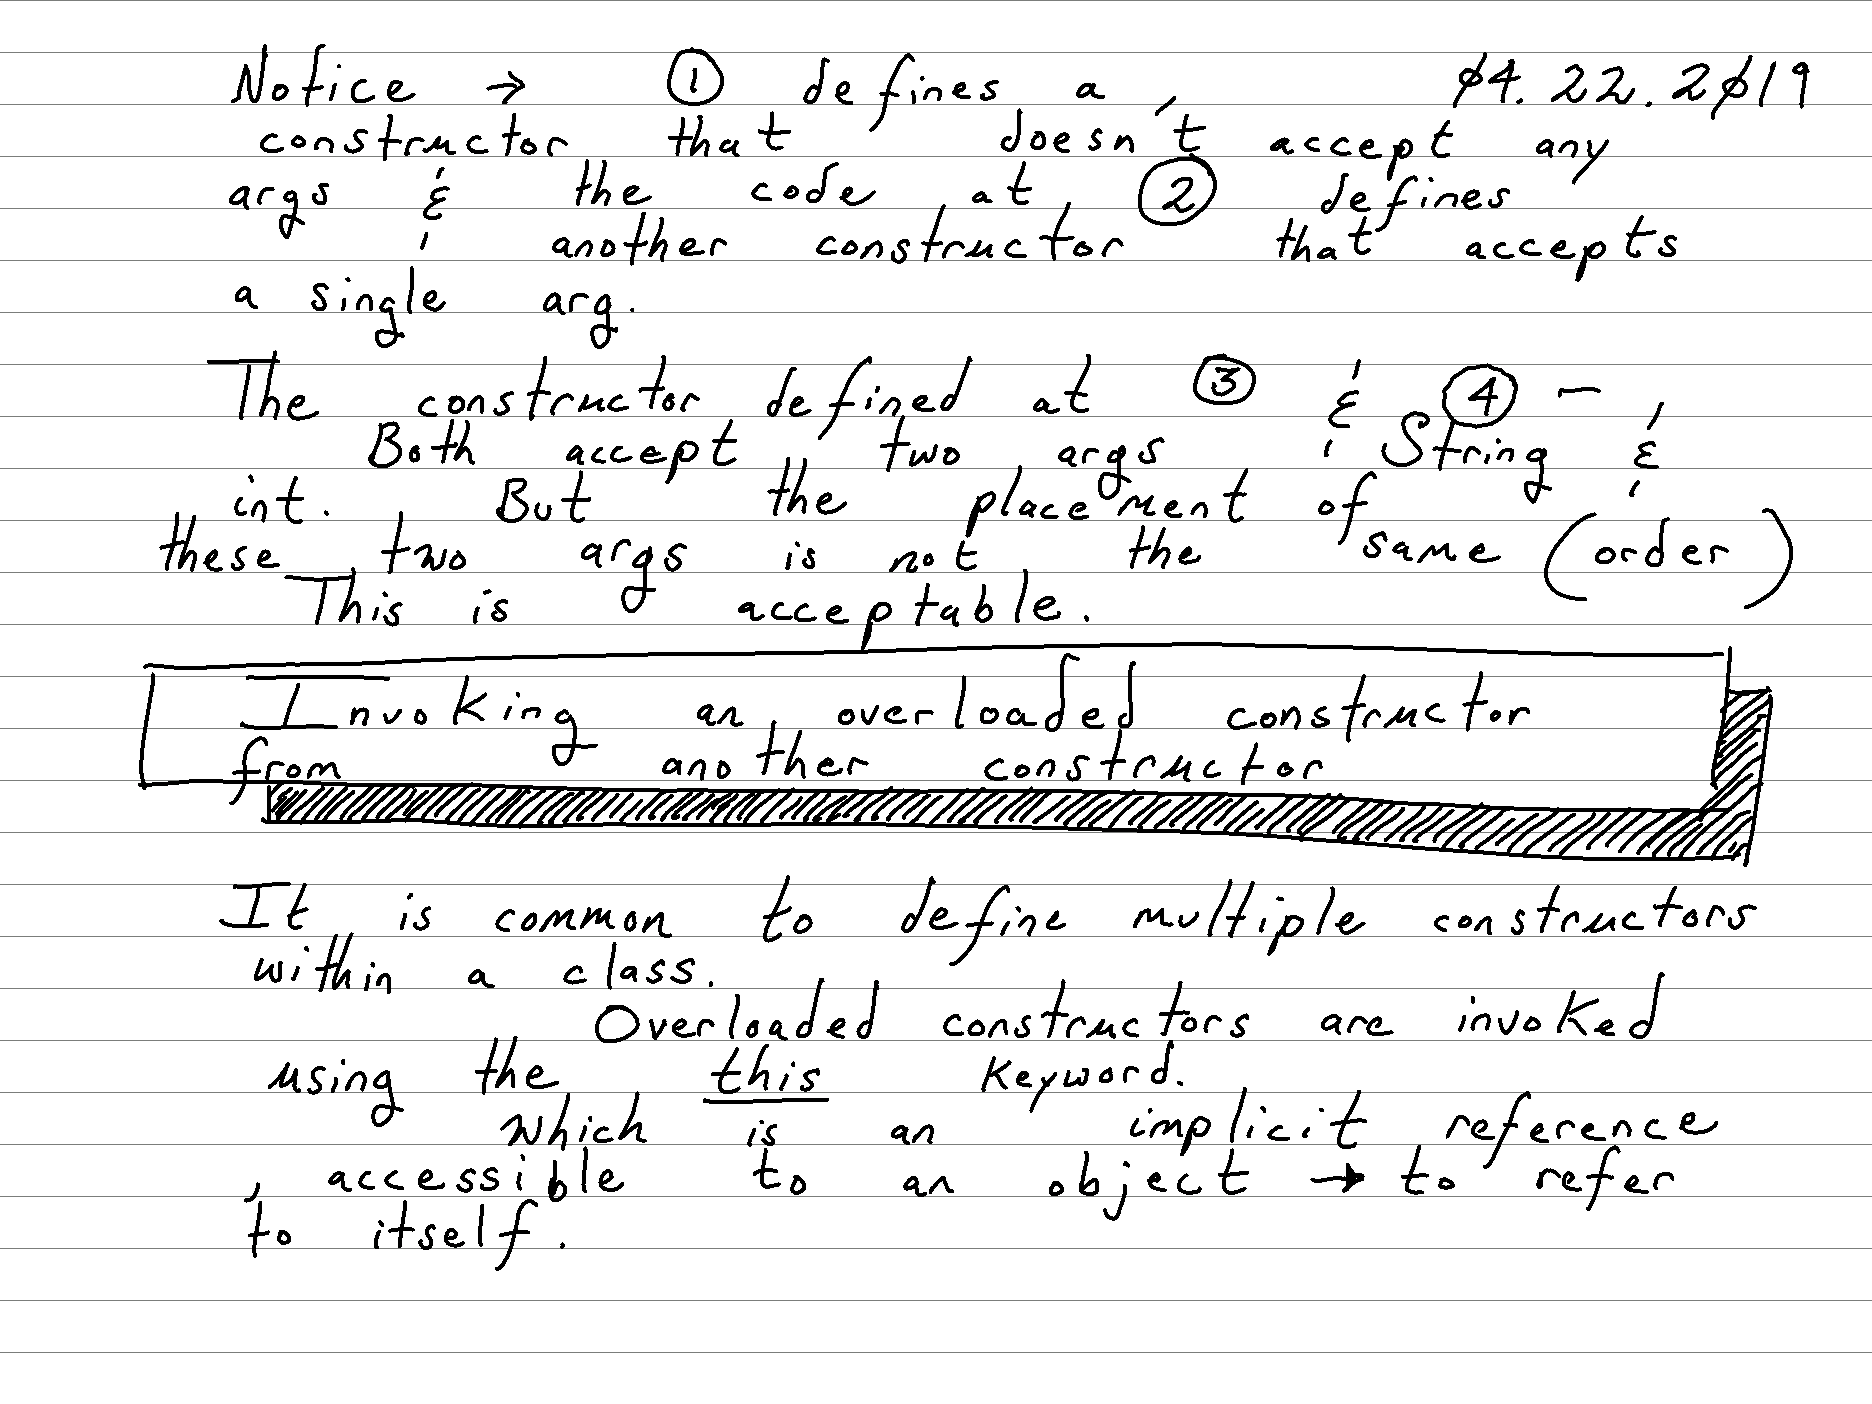 Notice → ① defines a 04.22.2019
constructor that doesn't accept any
args & the code at ② defines
another constructor that accepts
a single arg.
The constructor defined at ③ & ④ –
Both accept two args String &
int. But the placement of
these two args is not the same (order)
This is acceptable.
Invoking an overloaded constructor
from another constructor
It is common to define multiple constructors
within a class.
Overloaded constructors are invoked
using the this keyword.
Which is an implicit reference
, accessible to an object → to refer
to itself.